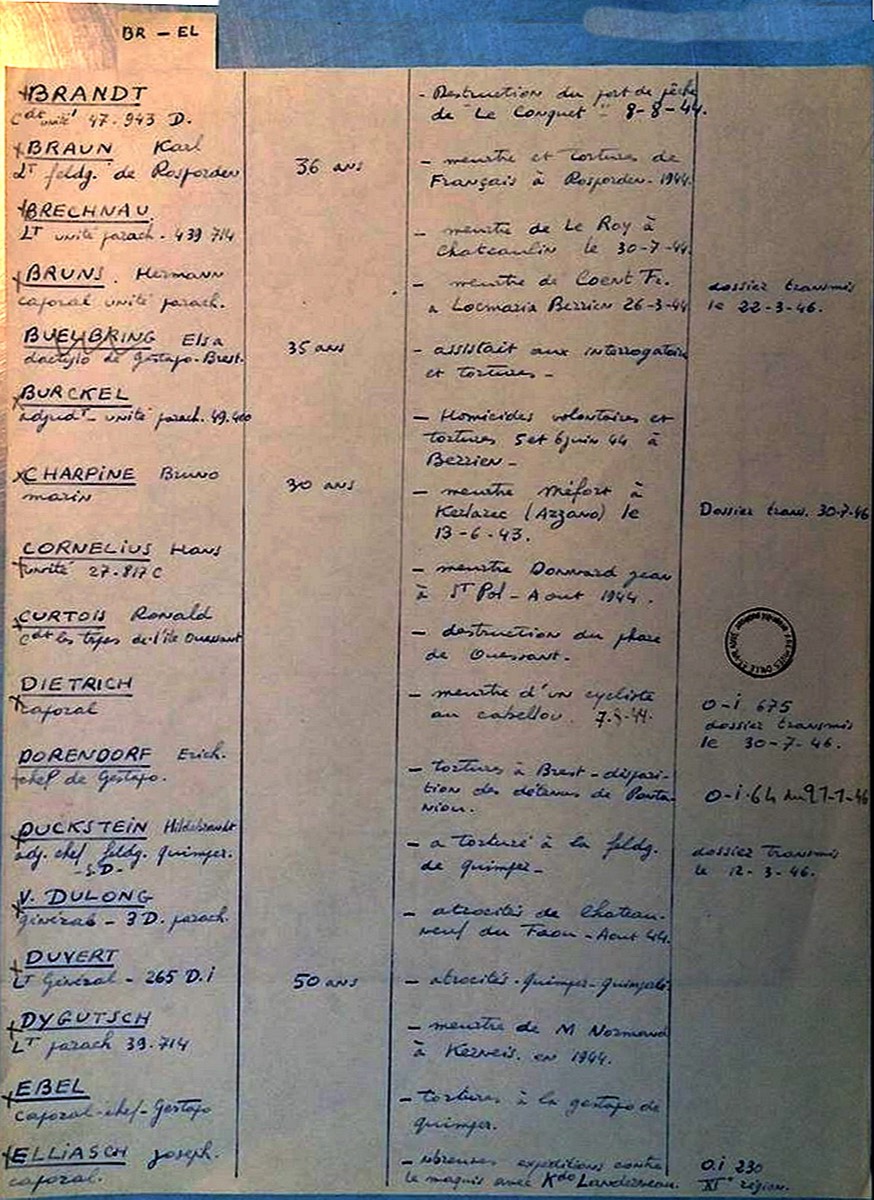 BR - EL
BRANDT
Cdt unité 47.943 D.
- Destruction du port de pêche
de "Le Conquet" 8-8-44.
BRAUN Karl
LT feldg. de Rosporden
36 ans
- meurtre et tortures de
Français à Rosporden. 1944.
BRECHNAU
LT unité parach. 439 714
- meurtre de Le Roy à
Chateaulin le 30-7-44.
BRUNS. Hermann
caporal unité parach.
- meurtre de Coent Fr.
a Locmaria Berrien 26-3-44
dossier transmis
le 22-3-46.
BUEYBRING Elsa
dactylo de Gestapo-Brest.
35 ans
- assistait aux interrogatoire
et tortures -
BURCKEL
adjudt - unité parach. 49.400
- Homicides volontaires et
tortures 5 et 6 juin 44 à
Berrien -
CHARPINE Bruno
marin
30 ans
- meurtre Méfort à
Kerlarec (Arzano) le
13-6-43.
Dossier trans. 30-7-46
CORNELIUS Hans
unité 27.817 C
- meurtre Donward jean
à ST Pol - Aout 1944.
CURTOIS Ronald
Cdt les trpes de l'île Ouessant
- destruction du phare
de Ouessant.
DIETRICH
caporal
- meurtre d'un cycliste
au cabellou. 7.8-44.
O-i 675
dossier transmis
le 30-7-46.
DORENDORF Erich.
chef de Gestapo.
- tortures à Brest - dispari-
tion des détenus de Ponta-
niou.
O-i.64 du 21-1-46
DUCKSTEIN Hildebrandt
adj. chef feldg. Quimper.
- S.D -
- a torturé à la feldg.
de quimper -
dossier Transmis
le 12-3-46.
V. DULONG
général - 3 D. parach.
- atrocités de Chateau-
neuf du Faou - Aout 44.
DUVERT
LT Général - 265 D.i
50 ans
- atrocités - Quimper - Quimperlé
DYGUTSCH
LT parach 39.714
- meurtre de M Normand
à Kerveis. en 1944.
EBEL
caporal-chef - Gestapo
- tortures à la gestapo de
quimper.
ELLIASCH joseph.
caporal.
- nbreuses expéditions contre
le maquis avec Kdo Landerneau.
O.i 230
XIe région.